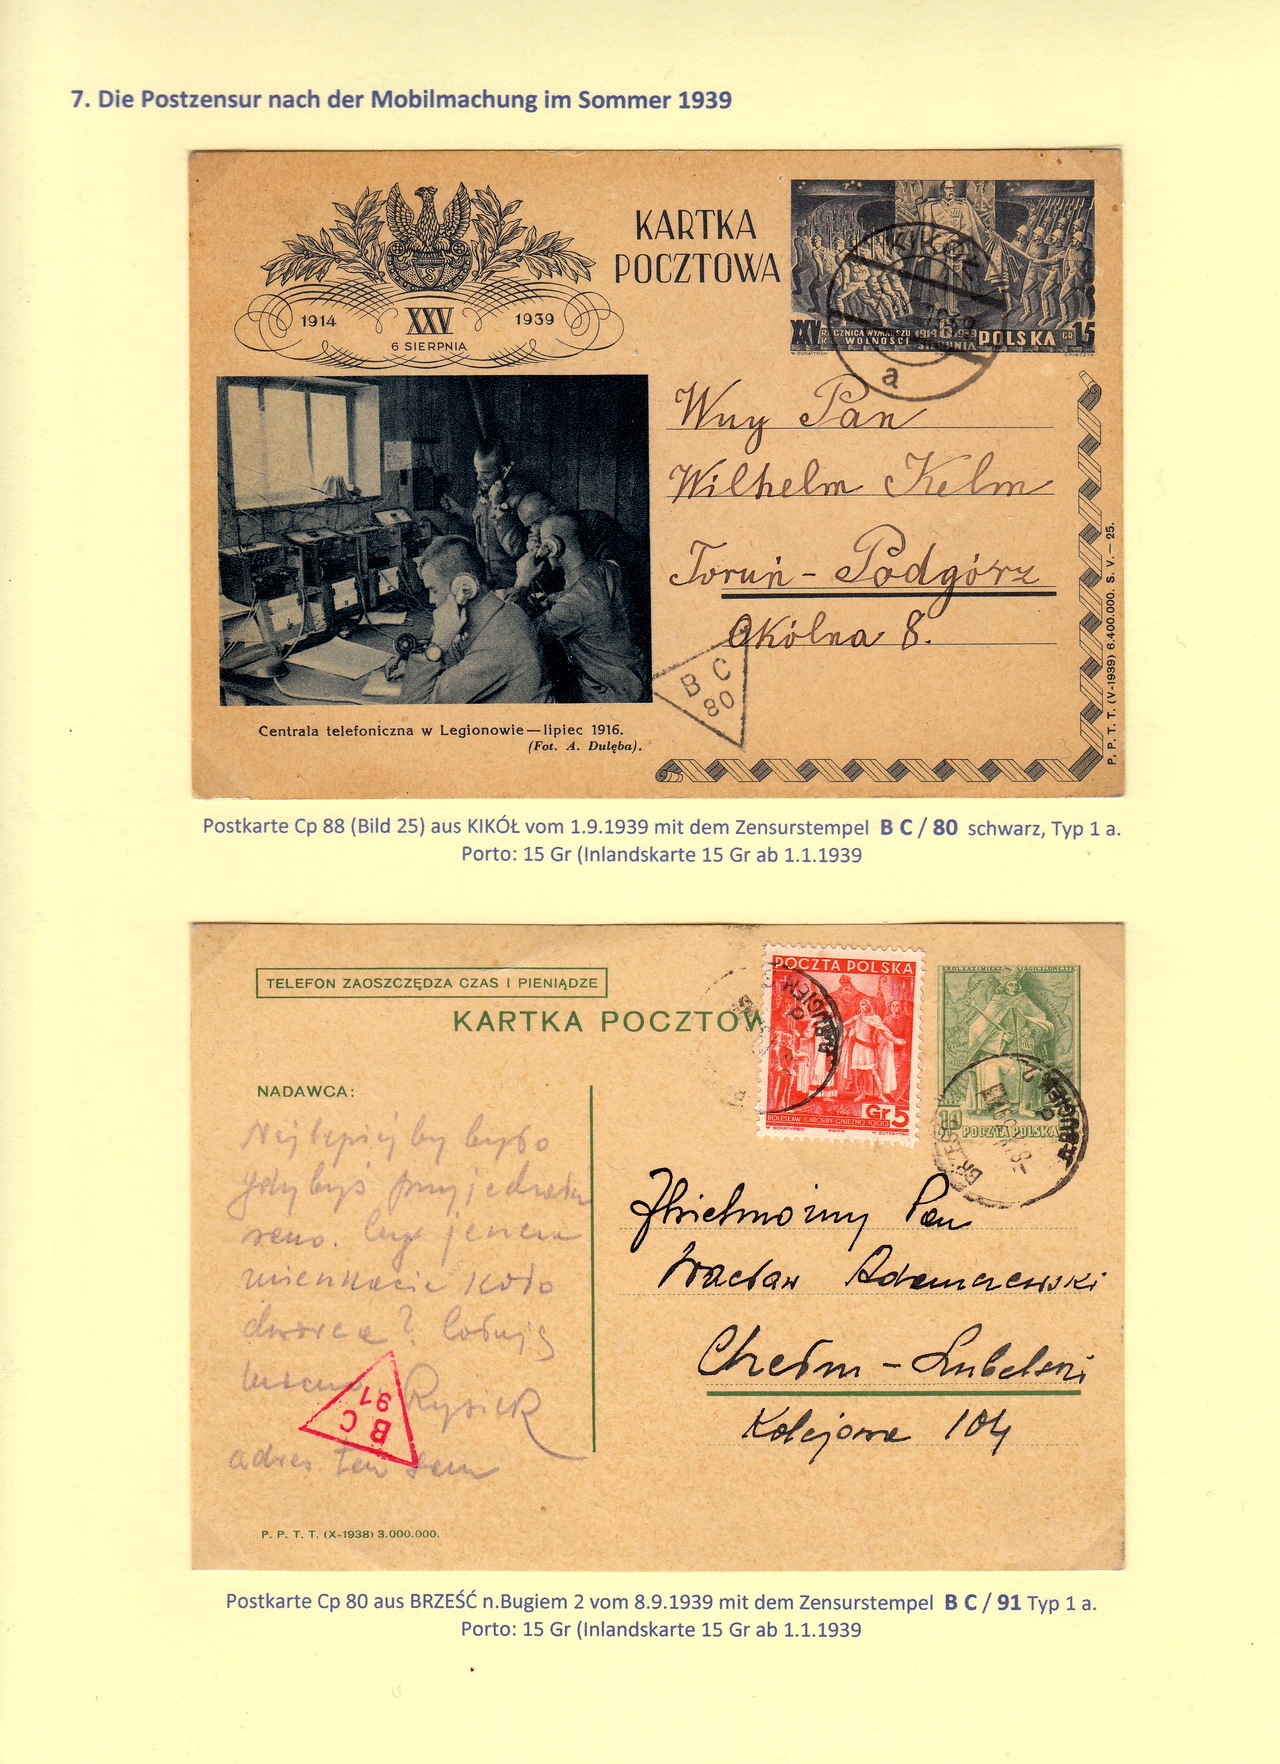 7. Die Postzensur nach der Mobilmachung im Sommer 1939
KARTKA
POCZTOWA
1914 XXV 1939
6 SIERPNIA
XXV ROCZNICA WYMARSZU 1914 6 1939 POLSKA GR 15
KU WOLNOŚCI SIERPNIA
KIKÓŁ
a
Wny Pan
Wilhelm Kelm
Toruń - Podgórz
Okólna 8.
B C
80
Centrala telefoniczna w Legionowie—lipiec 1916.
(Fot. A. Dulęba).
P. P. T. T. (V-1939) 6.400.000. S. V. — 25.
Postkarte Cp 88 (Bild 25) aus KIKÓŁ vom 1.9.1939 mit dem Zensurstempel B C / 80 schwarz, Typ 1 a.
Porto: 15 Gr (Inlandskarte 15 Gr ab 1.1.1939
TELEFON ZAOSZCZĘDZA CZAS I PIENIĄDZE
KARTKA POCZTOW
POCZTA POLSKA
Gr 5
BOLESŁAW CHROBRY GNIEZNO 1000
KRÓL KAZIMIERZ JAGIELLOŃCZYK
POCZTA POLSKA
NADAWCA:
Najlepiej by było
gdybyś przyjechała
Czy
koło
dworca?
Rysiek
adres ten sam
B C
91
Pan
Wacław Adamczewski
Chełm - Lubelski
Kolejowa 104
P. P. T. T. (X-1938) 3.000.000.
Postkarte Cp 80 aus BRZEŚĆ n.Bugiem 2 vom 8.9.1939 mit dem Zensurstempel B C / 91 Typ 1 a.
Porto: 15 Gr (Inlandskarte 15 Gr ab 1.1.1939